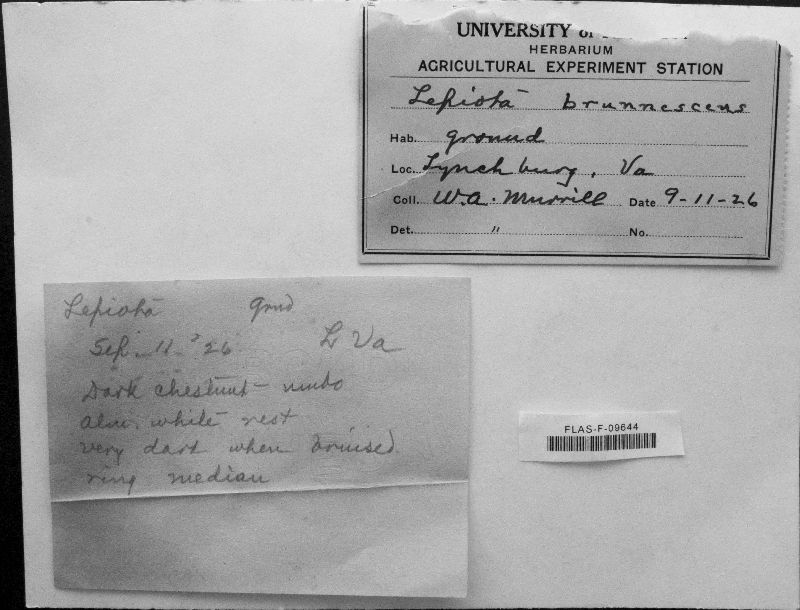 UNIVERSITY of
HERBARIUM
AGRICULTURAL EXPERIMENT STATION
Lepiota brunnescens
Hab. ground
Loc. Lynchburg, Va
Coll. W.A. Murrill Date 9-11-26
Det. " No.
Lepiota grnd
Sep. 11 '26 L Va
Dark chestnut umbo
alm. white rest
very dark when bruised
ring median
FLAS-F-09644